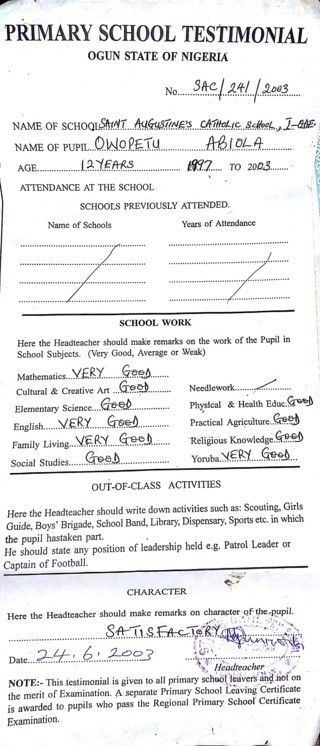 PRIMARY SCHOOL TESTIMONIAL
OGUN STATE OF NIGERIA
No. SAC/241/2003
NAME OF SCHOOL SAINT AUGUSTINE'S CATHOLIC School, I-ODE.
NAME OF PUPIL OWOPETU ABIOLA
AGE 12 YEARS 1997 TO 2003
ATTENDANCE AT THE SCHOOL
SCHOOLS PREVIOUSLY ATTENDED.
Name of Schools Years of Attendance
SCHOOL WORK
Here the Headteacher should make remarks on the work of the Pupil in
School Subjects. (Very Good, Average or Weak)
Mathematics VERY Good
Cultural & Creative Art Good Needlework
Elementary Science Good Physical & Health Educ. Good
English VERY Good Practical Agriculture Good
Family Living VERY Good Religious Knowledge Good
Social Studies Good Yoruba VERY Good
OUT-OF-CLASS ACTIVITIES
Here the Headteacher should write down activities such as: Scouting, Girls
Guide, Boys' Brigade, School Band, Library, Dispensary, Sports etc. in which
the pupil hastaken part.
He should state any position of leadership held e.g. Patrol Leader or
Captain of Football.
CHARACTER
Here the Headteacher should make remarks on character of the pupil.
SATISFACTORY
Date 24.6.2003
Headteacher
NOTE:- This testimonial is given to all primary school leavers and not on
the merit of Examination. A separate Primary School Leaving Certificate
is awarded to pupils who pass the Regional Primary School Certificate
Examination.